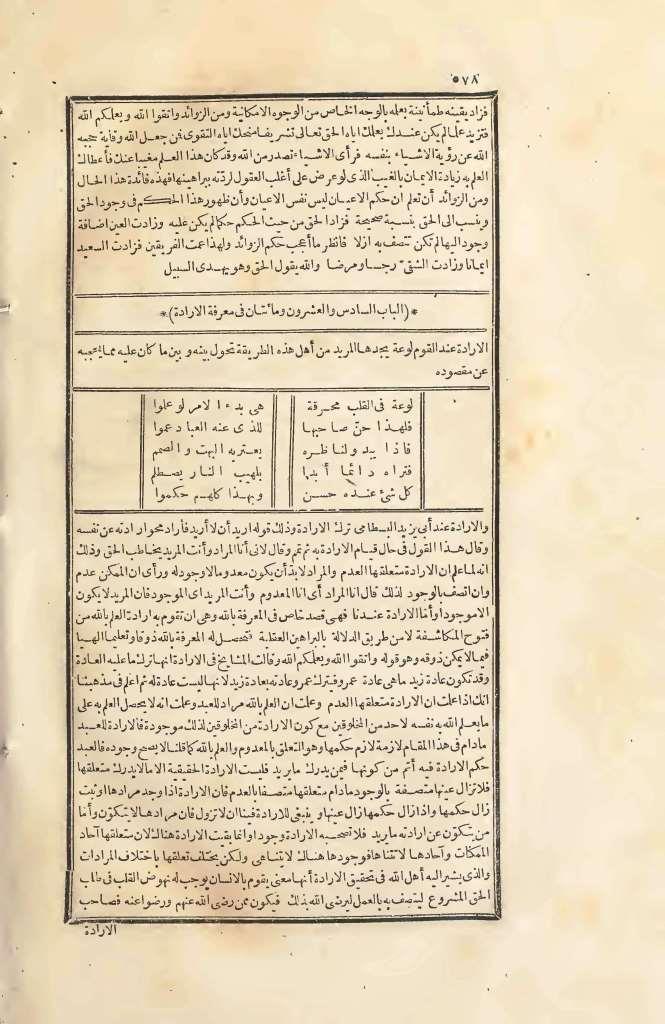 ٥٧٨
فزاد يقينه طمأنينة بعلمه بالوجه الخاص من الوجوه الامكانية ومن الزوائد واتقوا الله ويعلمكم الله
فتزيد علما لم يكن عندك يعلمك اياه الحق تعالى تشريفا منحك اياه التقوى فمن جعل الله وقاية حجبه
الله عن رؤية الاشياء بنفسه فرأى الاشياء تصدر من الله وقد كان هذا العلم مغيبا عنك فأعطاك
العلم به زيادة الايمان بالغيب الذى لو عرض على أغلب العقول لردته ببراهينها فهذه فائدة هذا الحال
ومن الزوائد أن تعلم ان حكم الاعيان ليس نفس الاعيان وأن ظهور هذا الحكم فى وجود الحق
وينسب الى الحق بنسبة صحيحة فزاد الحق من حيث الحكم حكما لم يكن عليه وزادت العين اضافة
وجود اليها لم تكن تتصف به ازلا فانظر ما أعجب حكم الزوائد ولهذا عمت الفريقين فزادت السعيد
ايمانا وزادت الشقى رجسا ومرضا والله يقول الحق وهو يهدى السبيل
*(الباب السادس والعشرون ومائتان فى معرفة الارادة)*
الارادة عند القوم لوعة يجدها المريد من أهل هذه الطريقة تحول بينه وبين ما كان عليه مما يحجبه
عن مقصوده
لوعة فى القلب محرقة هى بدء الامر لو علموا
فلهذا حنّ صاحبها للذى عنه العباد عموا
فاذا يبدو لناظره يعتريه البهت والصمم
فتراه دائما أبدا بلهيب النار يصطلم
كل شئ عنده حسن وبهذا كلهم حكموا
والارادة عند أبى يزيد البسطامى ترك الارادة وذلك قوله اريد أن لا أريد فأراد محو ارادته عن نفسه
وقال هذا القول فى حال قيام الارادة به ثم تمم وقال لانى أنا المراد وأنت المريد يخاطب الحق وذلك
انه لما علم ان الارادة متعلقها العدم والمراد لا بد أن يكون معدوما لا وجود له ورأى ان الممكن عدم
وان اتصف بالوجود لذلك قال انا المراد أى انا المعدوم وأنت المريد اى الموجود فان المريد لا يكون
الا موجودا وأما الارادة عندنا فهى قصد خاص فى المعرفة بالله وهى ان تقوم به ارادة العلم بالله من
فتوح المكاشفة لا من طريق الدلالة بالبراهين العقلية فتحصل له المعرفة بالله ذوقا وتعليما الهيا
فيما لا يمكن ذوقه وهو قوله واتقوا الله ويعلمكم الله وقالت المشايخ فى الارادة انها ترك ما عليه العادة
وقد تكون عادة زيد ما هى عادة عمرو فيترك عمرو عادته بعادة زيد لانها ليست عادة له ثم اعلم فى مذهبنا
انك اذا علمت ان الارادة متعلقها العدم وعلمت ان العلم بالله مراد للعبد وعلمت انه لا يحصل العلم به على
ما يعلم الله به نفسه لاحد من المخلوقين مع كون الارادة من المخلوقين لذلك موجودة فالارادة للعبد
ما دام فى هذا المقام لازمة لازم حكمها وهو التعلق بالمعدوم والعلم بالله كما قلنا لا يصح وجوده فالعبد
حكم الارادة فيه أتم من كونها فيمن يدرك ما يريد فليست الارادة الحقيقية الا ما لا يدرك متعلقها
فلا تزال عينها متصفة بالوجود ما دام متعلقها متصفا بالعدم فان الارادة اذا وجد مرادها اوثبت
زال حكمها واذا زال حكمها زال عينها وينبغى للارادة فينا ان لا تزول فان مرادها لا يتكوّن وأما
من يتكوّن عن ارادته ما يريد فلا تصحبه الارادة وجودا وانما بقيت الارادة هناك لان متعلقها آحاد
الممكنات وآحادها لا تتناها فوجودها هناك لا يتناهى ولكن يختلف تعلقها باختلاف المرادات
والذى يشير اليه أهل الله فى تحقيق الارادة أنها معنى يقوم بالانسان يوجب له نهوض القلب فى طلب
الحق المشروع ليتصف به بالعمل ليرضى الله بذلك فيكون ممن رضى الله عنهم ورضوا عنه فصاحب
الارادة